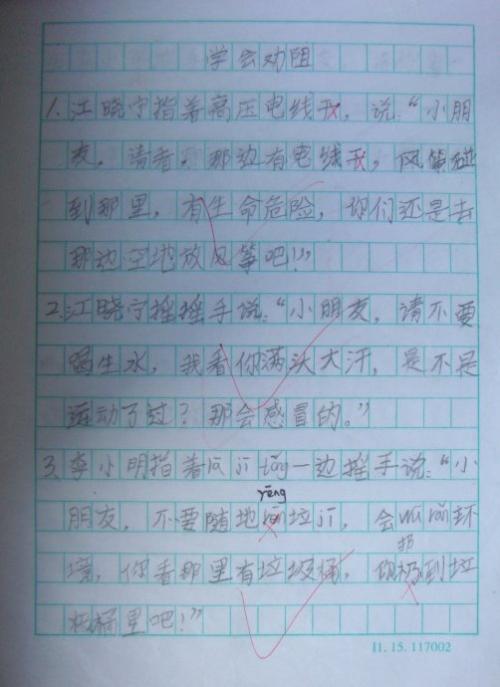 学会劝阻
1.江晓宁指着高压电线我，说：“小朋
友，请看，那边有电线我，风筝碰
到那里，有生命危险，你们还是去
那边空地放风筝吧！”
2.江晓宁摇摇手说：“小朋友，请不要
喝生水，我看你满头大汗，是不是
运动了过？那会感冒的。”
3.李小明指着lā jī tǒng一边摇手说：“小
yēng
朋友，不要随地 垃jī，会wū rǎn环
扔
境，你看那里有垃圾桶，你扔到垃
圾桶里吧！”
11.15.117002